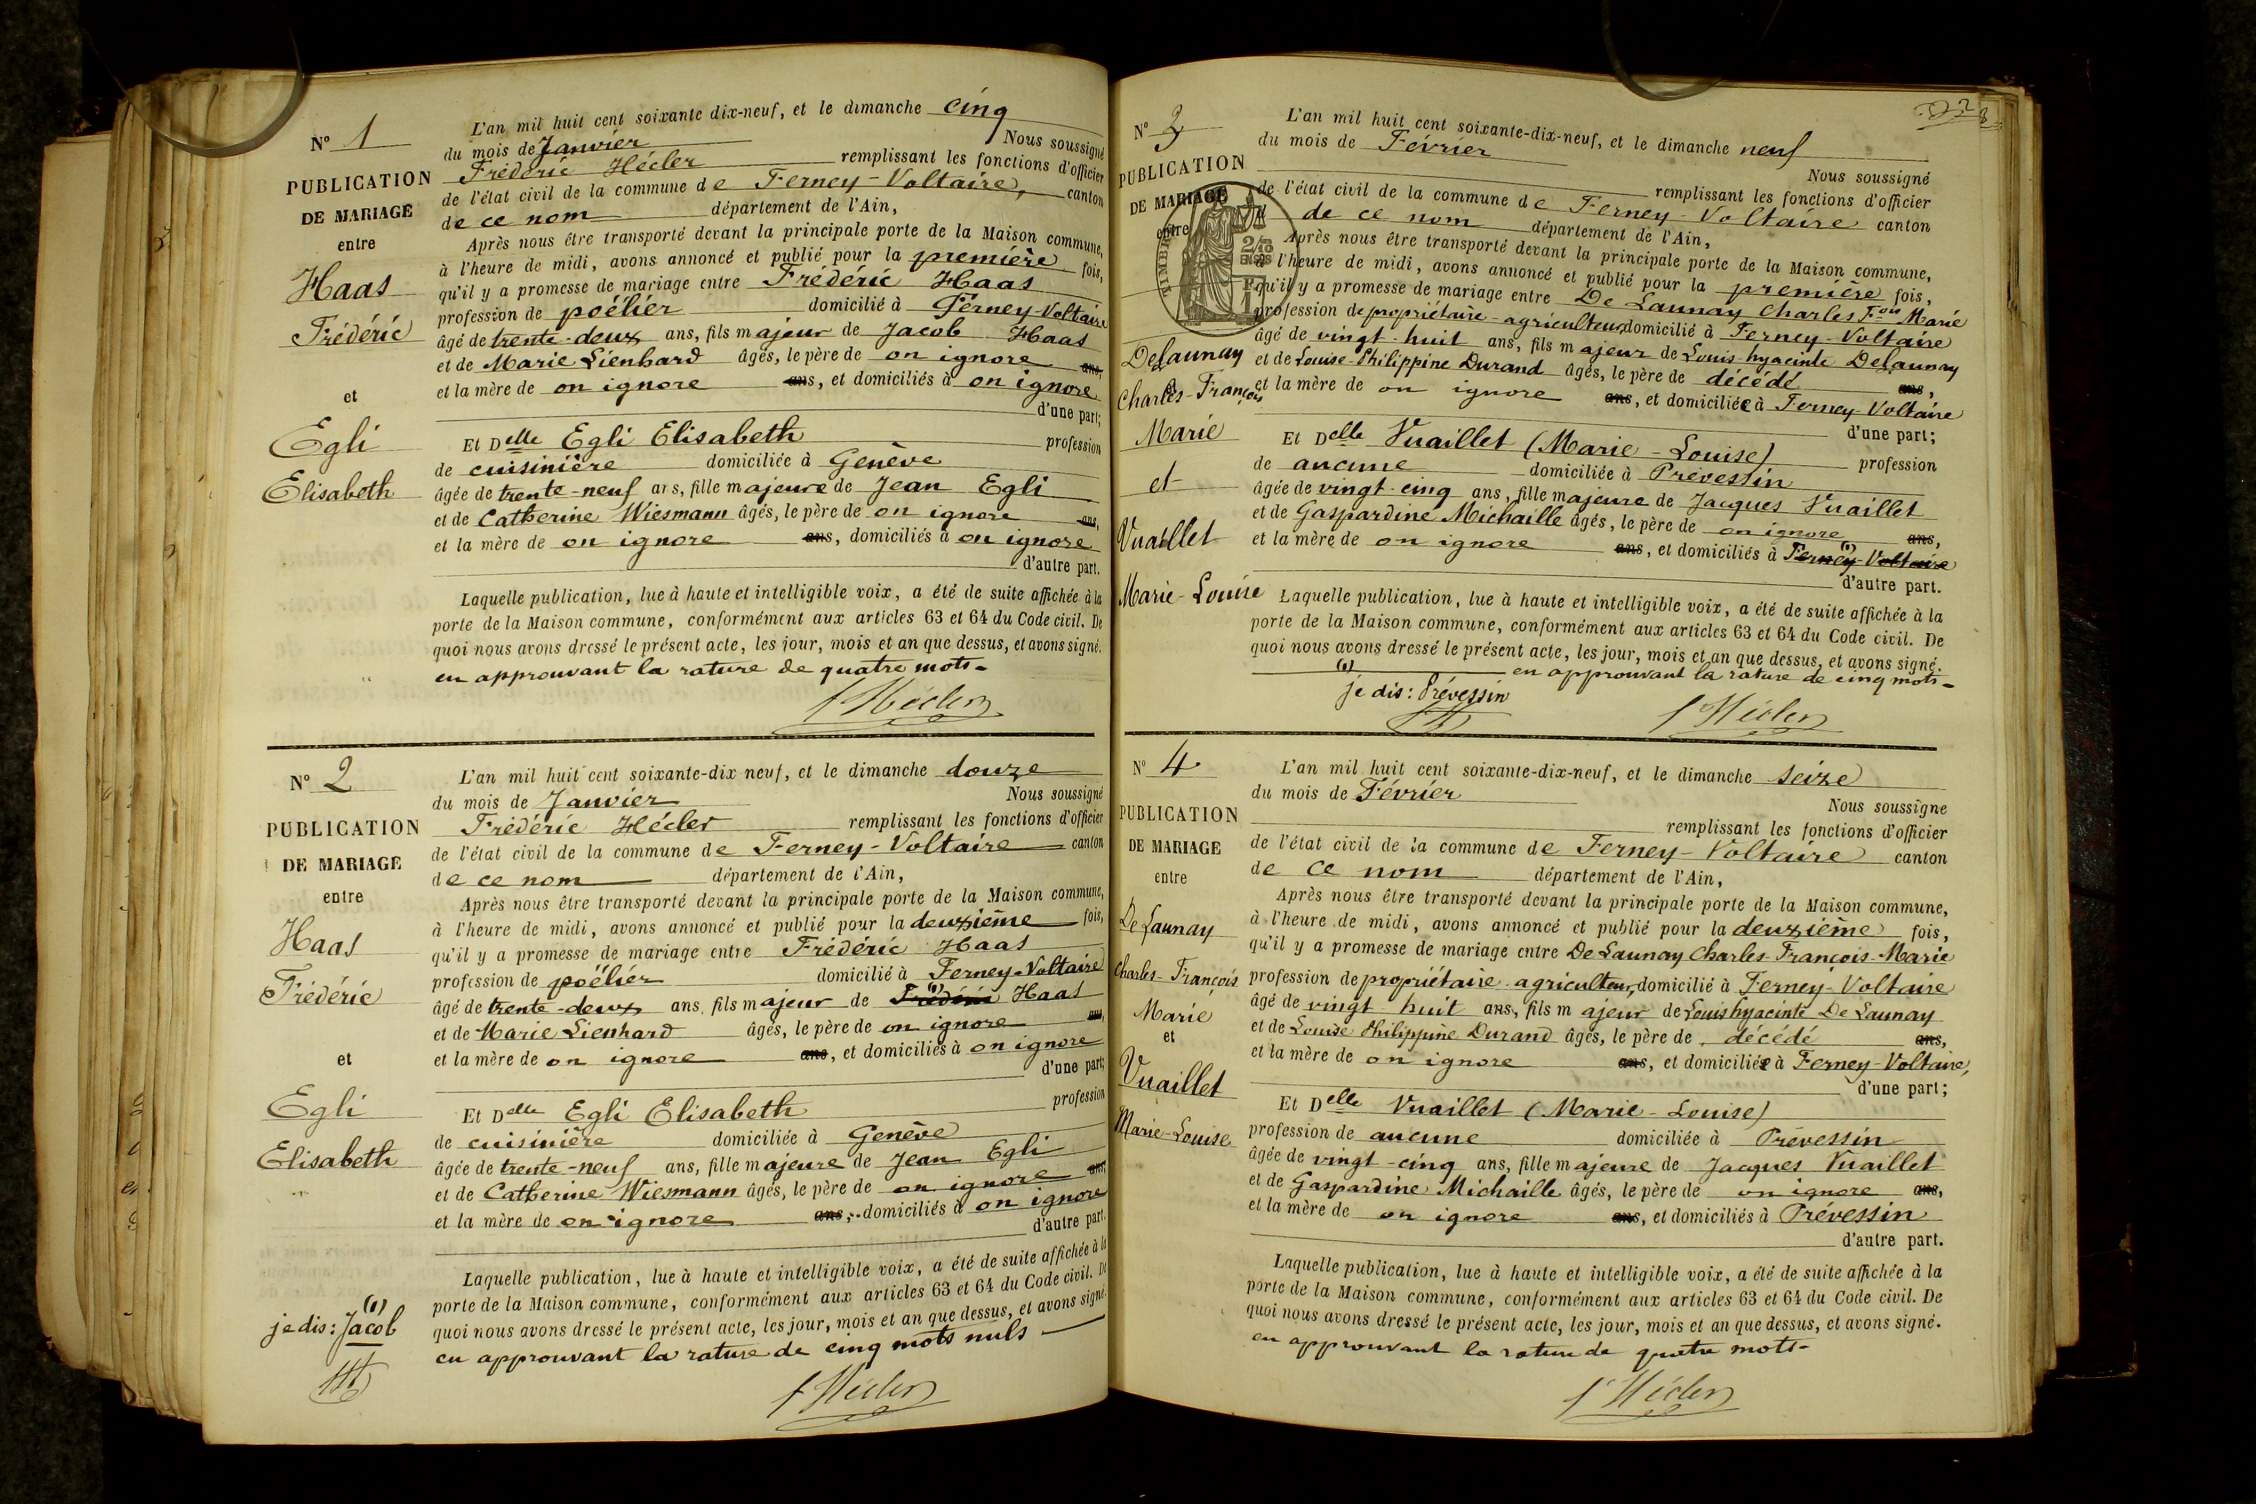 N° 1
PUBLICATION
DE MARIAGE
entre
Haas
Frédéric
et
Egli
Elisabeth
L'an mil huit cent soixante dix-neuf, et le dimanche cinq
du mois de Janvier Nous soussigné
Frédéric Hécler remplissant les fonctions d'officier
de l'état civil de la commune de Ferney-Voltaire, canton
de ce nom département de l'Ain,
Après nous être transporté devant la principale porte de la Maison commune,
à l'heure de midi, avons annoncé et publié pour la première fois,
qu'il y a promesse de mariage entre Frédéric Haas
profession de poëlier domicilié à Ferney-Voltaire
âgé de trente-deux ans, fils majeur de Jacob Haas
et de Marie Lienhard âgés, le père de on ignore ans,
et la mère de on ignore ans, et domiciliés à on ignore
d'une part;
Et Delle Egli Elisabeth profession
de cuisinière domiciliée à Genève
âgée de trente-neuf ans, fille majeure de Jean Egli
et de Catherine Wiesmann âgés, le père de on ignore ans,
et la mère de on ignore ans, domiciliés à on ignore
d'autre part.
Laquelle publication, lue à haute et intelligible voix, a été de suite affichée à la
porte de la Maison commune, conformément aux articles 63 et 64 du Code civil. De
quoi nous avons dressé le présent acte, les jour, mois et an que dessus, et avons signé.
en approuvant la rature de quatre mots-
f Hécler
N° 2
PUBLICATION
DE MARIAGE
entre
Haas
Frédéric
et
Egli
Elisabeth
(1)
je dis: Jacob
L'an mil huit cent soixante-dix neuf, et le dimanche douze
du mois de Janvier Nous soussigné
Frédéric Hécler remplissant les fonctions d'officier
de l'état civil de la commune de Ferney-Voltaire canton
de ce nom département de l'Ain,
Après nous être transporté devant la principale porte de la Maison commune,
à l'heure de midi, avons annoncé et publié pour la deuxième fois,
qu'il y a promesse de mariage entre Frédéric Haas
profession de poëlier domicilié à Ferney-Voltaire
âgé de trente-deux ans, fils majeur de Frédéric (1) Haas
et de Marie Lienhard âgés, le père de on ignore ans,
et la mère de on ignore ans, et domiciliés à on ignore
d'une part;
Et Delle Egli Elisabeth profession
de cuisinière domiciliée à Genève
âgée de trente-neuf ans, fille majeure de Jean Egli
et de Catherine Wiesmann âgés, le père de on ignore ans,
et la mère de on ignore ans, domiciliés à on ignore
d'autre part.
Laquelle publication, lue à haute et intelligible voix, a été de suite affichée à la
porte de la Maison commune, conformément aux articles 63 et 64 du Code civil. De
quoi nous avons dressé le présent acte, les jour, mois et an que dessus, et avons signé.
en approuvant la rature de cinq mots nuls
f Hécler
N° 3
PUBLICATION
DE MARIAGE
entre
Delaunay
Charles-François
Marie
et
Vuaillet
Marie-Louise
TIMBRE
2/10
EN SUS
L'an mil huit cent soixante-dix-neuf, et le dimanche neuf
du mois de Février Nous soussigné
remplissant les fonctions d'officier
de l'état civil de la commune de Ferney-Voltaire canton
de ce nom département de l'Ain,
Après nous être transporté devant la principale porte de la Maison commune,
à l'heure de midi, avons annoncé et publié pour la première fois,
qu'il y a promesse de mariage entre De Launay Charles Fois Marie
profession de propriétaire-agriculteur, domicilié à Ferney-Voltaire
âgé de vingt-huit ans, fils majeur de Louis-hyacinte Delaunay
et de Louise-Philippine Durand âgés, le père de décédé ans,
et la mère de on ignore ans, et domiciliée à Ferney-Voltaire
d'une part;
Et Delle Vuaillet (Marie-Louise) profession
de aucune domiciliée à Prévessin
âgée de vingt-cinq ans, fille majeure de Jacques Vuaillet
et de Gaspardine Michaille âgés, le père de on ignore ans,
et la mère de on ignore ans, et domiciliés à Ferney (1) Voltaire
d'autre part.
Laquelle publication, lue à haute et intelligible voix, a été de suite affichée à la
porte de la Maison commune, conformément aux articles 63 et 64 du Code civil. De
quoi nous avons dressé le présent acte, les jour, mois et an que dessus, et avons signé.
(1) en approuvant la rature de cinq mots-
je dis: Prévessin
f Hécler
N° 4
PUBLICATION
DE MARIAGE
entre
De Launay
Charles-François
Marie
et
Vuaillet
Marie-Louise
L'an mil huit cent soixante-dix-neuf, et le dimanche seize
du mois de Février Nous soussigné
remplissant les fonctions d'officier
de l'état civil de la commune de Ferney-Voltaire canton
de ce nom département de l'Ain,
Après nous être transporté devant la principale porte de la Maison commune,
à l'heure de midi, avons annoncé et publié pour la deuxième fois,
qu'il y a promesse de mariage entre De Launay Charles-François-Marie
profession de propriétaire-agriculteur, domicilié à Ferney-Voltaire
âgé de vingt huit ans, fils majeur de Louis hyacinte De Launay
et de Louise Philippine Durand âgés, le père de décédé ans,
et la mère de on ignore ans, et domiciliée à Ferney-Voltaire,
d'une part;
Et Delle Vuaillet (Marie-Louise)
profession de aucune domiciliée à Prévessin
âgée de vingt-cinq ans, fille majeure de Jacques Vuaillet
et de Gaspardine Michaille âgés, le père de on ignore ans,
et la mère de on ignore ans, et domiciliés à Prévessin
d'autre part.
Laquelle publication, lue à haute et intelligible voix, a été de suite affichée à la
porte de la Maison commune, conformément aux articles 63 et 64 du Code civil. De
quoi nous avons dressé le présent acte, les jour, mois et an que dessus, et avons signé.
en approuvant la rature de quatre mots-
f Hécler